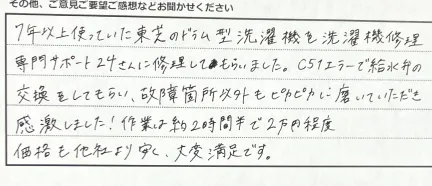 その他、ご意見ご要望ご感想などお聞かせください
7年以上使っていた東芝のドラム型洗濯機を洗濯機修理
専門サポート24さんに修理してもらいました。C51エラーで給水弁の
交換をしてもらい、故障箇所以外もピカピカに磨いていただき
感激しました!作業は約2時間半で2万円程度
価格も他社より安く、大変満足です。